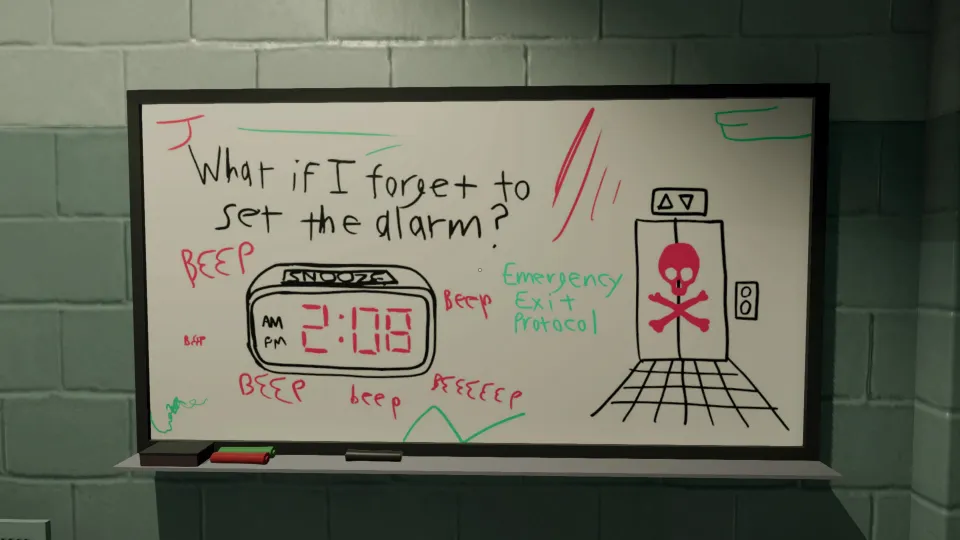 What if I forget to
set the alarm?
BEEP
SNOOZE
AM
PM
2:08
Beep
BEEP
BEEP
beep
BEEEEEP
Emergency
Exit
Protocol